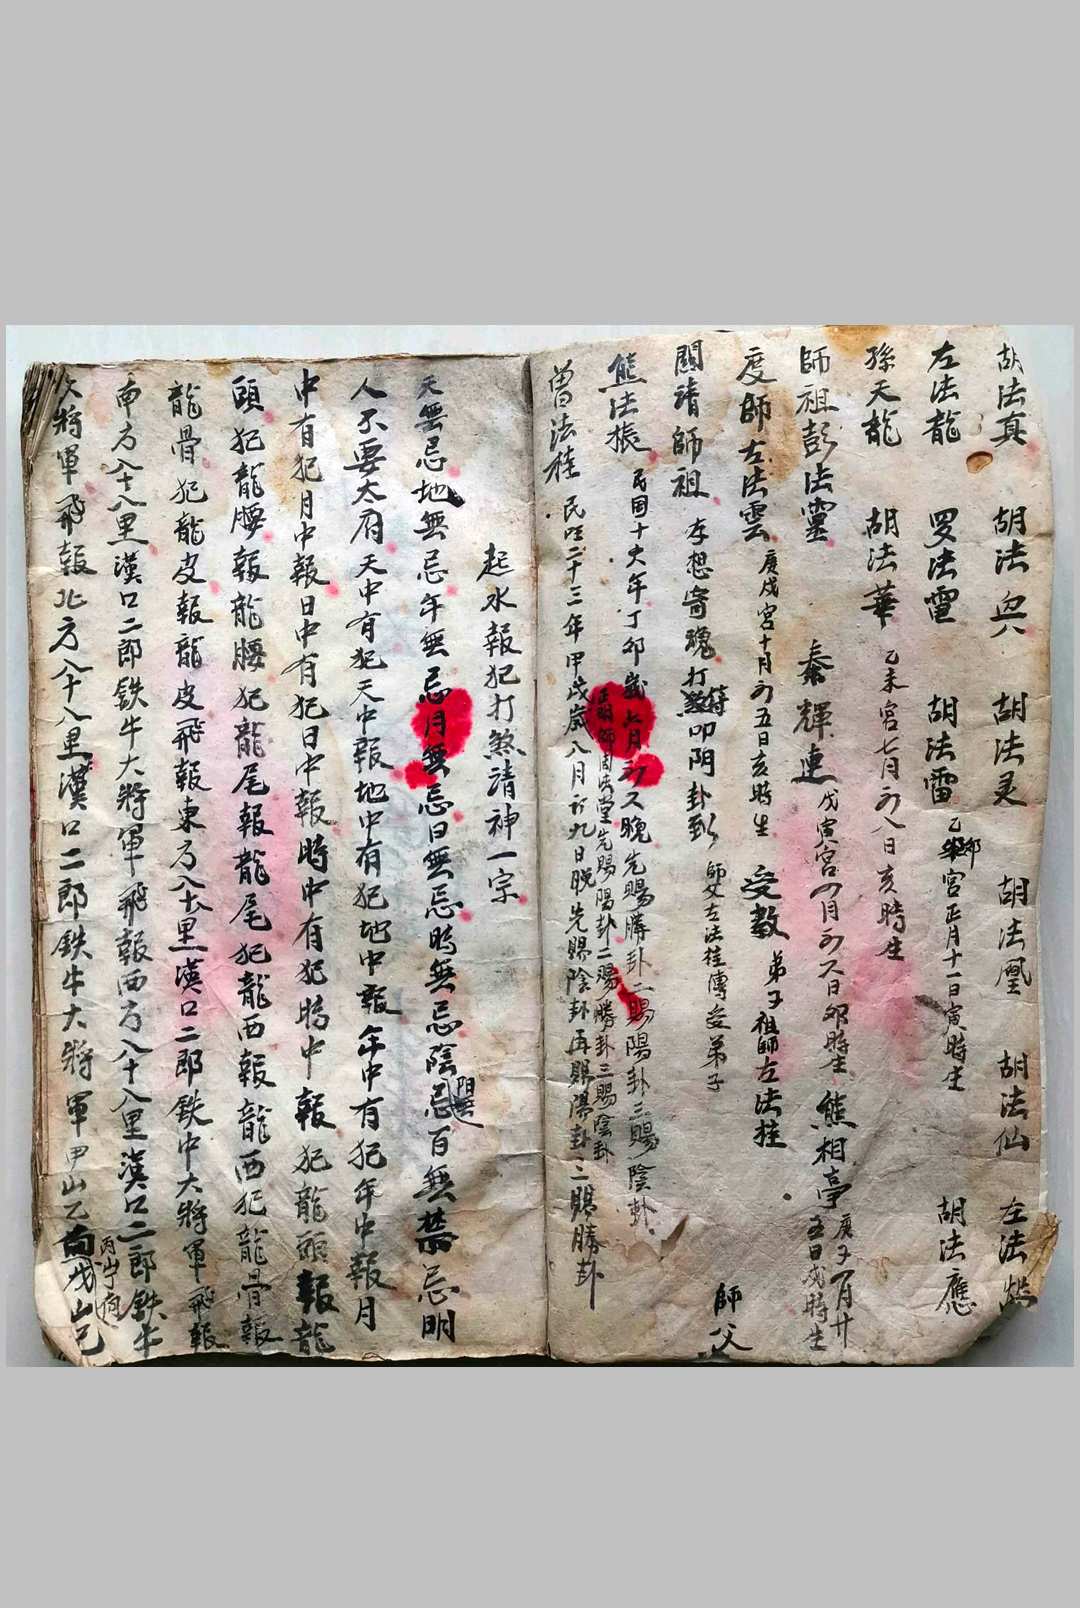 胡法真 胡法兴 胡法灵 胡法凰 胡法仙 左法
左法龍 罗法雷 胡法雷 乙卯宮正月十一日寅時生 胡法應
孫天龍 胡法華 乙未宮七月初八日亥時生
師祖彭法靈 秦輝連 戊寅宮四月初六日卯時生 熊相亭 庚子八月廿五日戌時生
度師左法雲 庚戌宮十月初五日亥時生 受教 弟子祖師左法桂
關請師祖 存想寄魂打煞符叩阴卦到 師父左法桂傳受弟子 師父
熊法振 民国十六年丁卯歲六月初六晚先賜勝卦二賜陽卦三賜陰卦
正明師周法堂先賜陽卦二賜勝卦三賜陰卦
曾法桂 民国二十三年甲戌歲八月初九日晚先賜陰卦再賜陽卦三賜勝卦
起水報犯打煞請神一宗
天無忌地無忌年無忌月無忌日無忌時無忌陰無忌陽忌百無禁忌明
人不要太府天中有犯天中報地中有犯地中報年中有犯年中報月
中有犯月中報日中有犯日中報時中有犯時中報犯龍頭報龍
頭犯龍腰報龍腰犯龍尾報龍尾犯龍西報龍西犯龍骨報
龍骨犯龍皮報龍皮飛報東方八十八里漢口二郎鉄牛大將軍飛報
南方八十八里漢口二郎鉄牛大將軍飛報西方八十八里漢口二郎鉄牛
大將軍飛報北方八十八里漢口二郎鉄牛大將軍甲山乙向丙山丁向戊山己